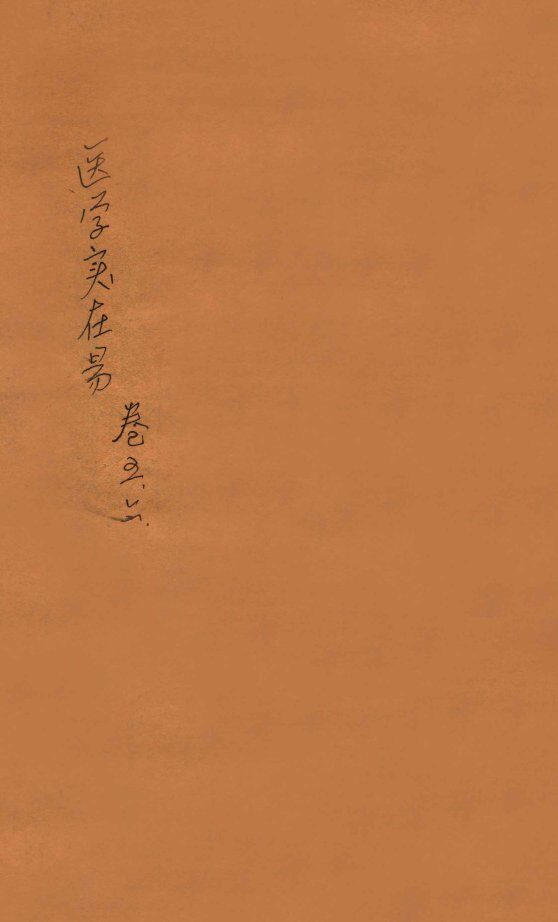 医学实在易
卷五、六